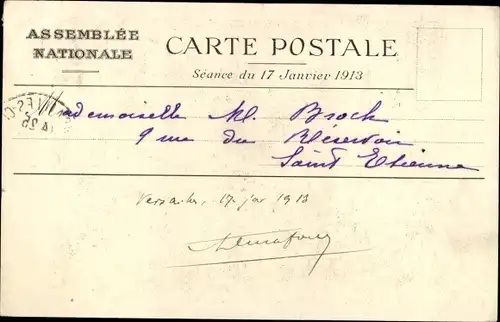 ASSEMBLÉE
NATIONALE
CARTE POSTALE
Séance du 17 Janvier 1913
Mademoiselle M. Brock
9 rue du Réservoir
Saint Etienne
17 1913